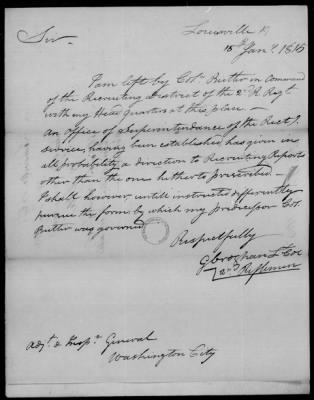 Louisville K
15 Jany. 1815
Sir
I am left by Col. Butler in Command
of the Recruiting District of the 2d R. Regt.
with my Head Quarters at this place. —
An office of Superintendance of the Rect.g
service, having been established has given in
all probability, a direction to Recruiting Reports
other than the one hitherto prescribed. —
I shall however, until instructed differently
pursue the form by which my predecessor Col.
Butler was governed
Respectfully
G Croghan Lt Col
2nd Riflemen
Adjt. & Inspr. General
Washington City